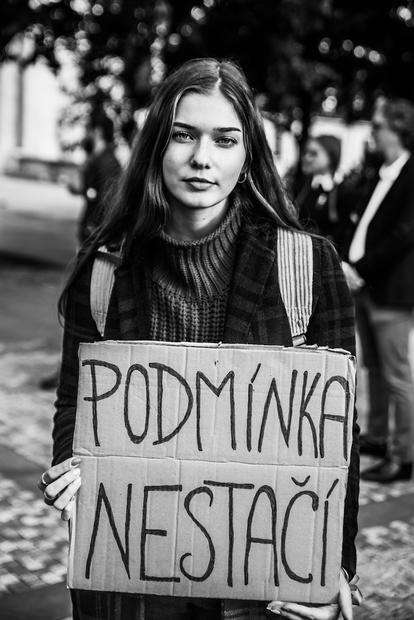 PODMÍNKA
NESTAČÍ